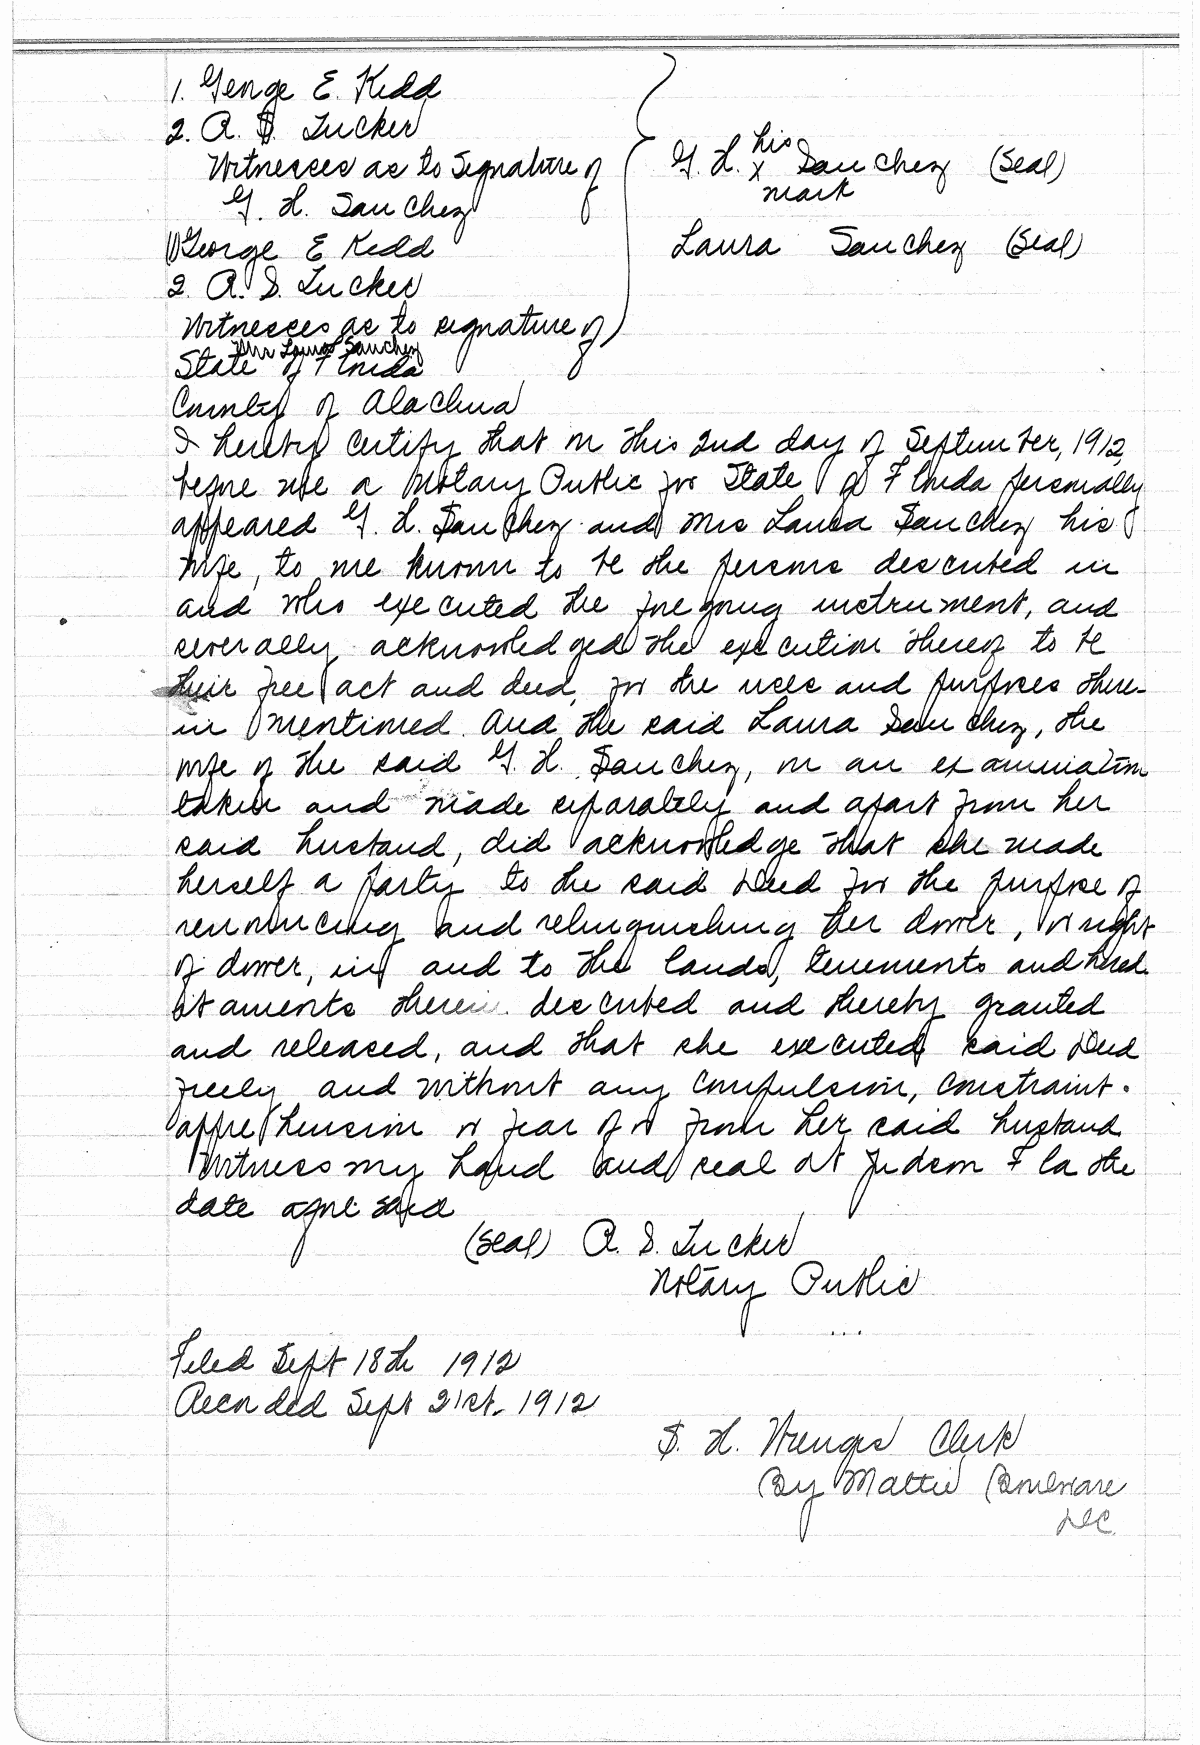 1. George E. Kedd
2. A. S. Tucker
Witnesses as to Signature of
G. H. Sanchez
1 George E Kedd
2. A. S. Tucker
Witnesses as to signature of
Mrs Laura Sanchez
G. H. his x mark Sanchez (Seal)
Laura Sanchez (Seal)
State of Florida
County of Alachua
I hereby certify that on this 2nd day of September, 1912,
before me a Notary Public for State of Florida personally
appeared G. H. Sanchez and Mrs Laura Sanchez his
wife, to me known to be the persons described in
and who executed the foregoing instrument, and
severally acknowledged the execution thereof to be
their free act and deed, for the uses and purposes there-
in mentioned. And the said Laura Sanchez, the
wife of the said G. H. Sanchez, on an examination
taken and made separately and apart from her
said husband, did acknowledge that she made
herself a party to the said Deed for the purpose of
renouncing and relinquishing her dower, or right
of dower, in and to the lands, tenements and hered
itaments therein described and thereby granted
and released, and that she executed said Deed
freely and without any compulsion, constraint.
apprehension or fear of or from her said husband
Witness my hand and seal at Judson Fla the
date aforesaid
(Seal) A. S. Tucker
Notary Public
Filed Sept 18th 1912
Recorded Sept 21st. 1912
S. H. Wienges Clerk
By Mattie Boulware
DC